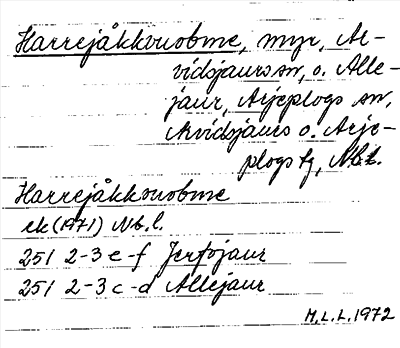 Harrejåkkvuobme, myr, Ar-
vidsjaurs sn, o. Alle-
jaur, Arjeplogs sn,
Arvidsjaurs o. Arje-
plogs tg, Nb.l.
Harrejåkkvuobme
ek (1971) Nb.l.
25I 2-3 e-f Jerfojaur
25I 2-3 c-d Allejaur
M.L.L. 1972